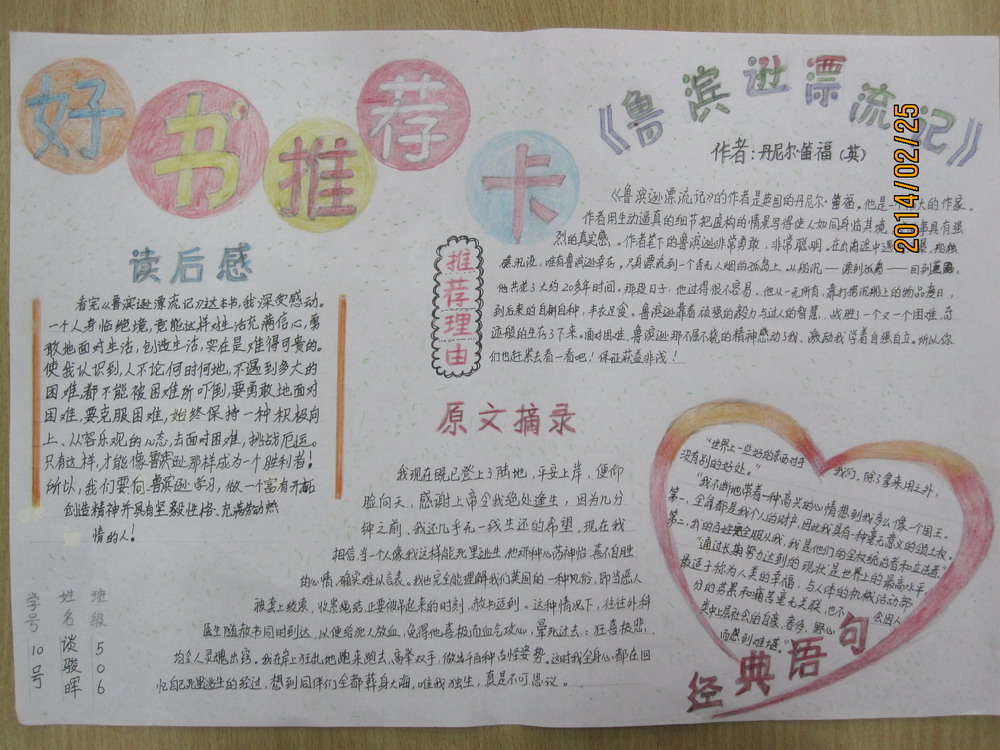 好书推荐卡
《鲁滨逊漂流记》
作者:丹尼尔·笛福(英)
2014/02/25
推荐理由
《鲁滨逊漂流记》的作者是英国的丹尼尔·笛福。他是一个大的作家。
作者用生动逼真的细节把虚构的情景写得使人如同身临其境,具有强
烈的真实感。作者笔下的鲁滨逊非常勇敢,非常聪明。在出海途中遇
唯有鲁滨逊幸存,只身漂流到一个杳无人烟的孤岛上。从船沉——漂到孤岛——回到英国,
他共花了大约20多年时间。那段日子,他过得很不容易。他从一无所有,靠打捞沉船上的物品度日,
到后来的自耕自种,丰衣足食。鲁滨逊靠着顽强的毅力与过人的智慧,战胜了一个又一个困难,奇
迹般的生存了下来。面对困难,鲁滨逊那不屈不挠的精神感动了我,激励我学着自强自立。所以你
们也赶紧去看一看吧!保证获益非浅!
读后感
看完《鲁滨逊漂流记》这本书,我深受感动。
一个人身临绝境,竟能这样对生活充满信心,勇
敢地面对生活,创造生活,实在是难得可贵的。
使我认识到,人不论何时何地,不遇到多大的
困难,都不能被困难所吓倒,要勇敢地面对
困难,要克服困难,始终保持一种积极向
上、从容乐观的心态,去面对困难,挑战厄运。
只有这样,才能像鲁滨逊那样成为一个胜利者!
所以,我们要向鲁滨逊学习,做一个富有开拓
创造精神并具有坚毅性格、充满劳动热
情的人!
原文摘录
我现在既已登上了陆地,平安上岸,便仰
脸向天,感谢上帝令我绝处逢生,因为几分
钟之前,我还几乎无一线生还的希望,现在我
相信,当一个人像我这样能死里逃生,他那种心荡神怡,喜不自胜
的心情,确实难以言表。我也完全能理解我们英国的一种风俗,即当恶人
被套上绞索,收紧绳结,正要被吊起来的时刻,赦书适到。这种情况下,往往外科
医生随赦书同时到达,以便给犯人放血,免得他喜极而血气攻心,晕死过去:狂喜极悲,
均令人灵魂出窍。我在岸上狂乱地跑来跑去,高举双手,做出千百种古怪姿势。这时我全身心都在回
忆自己死里逃生的经过,想到同伴们全都葬身大海,唯我独生,真是不可思议。
“世界上一些好的东西对于我们,除了拿来用之外,
没有别的好处。”
“我不断地带着一种高兴的心情想到我多么像一个国王。
第一,全岛都是我个人的财产,因此我具有一种毫无意义的领土权。
第二,我的百姓完全服从我,我是他们的全权统治者和立法者。”
“通过长期努力达到的现状是世界上的最高水平,
最适于称为人类的幸福,与人体的机械活动部
分的劳累和痛苦毫无关联,也不会因人
类中上层社会的自豪、奢侈、野心
而感到难堪。”
经典语句
班级 506
姓名 谈骏晖
学号 10号